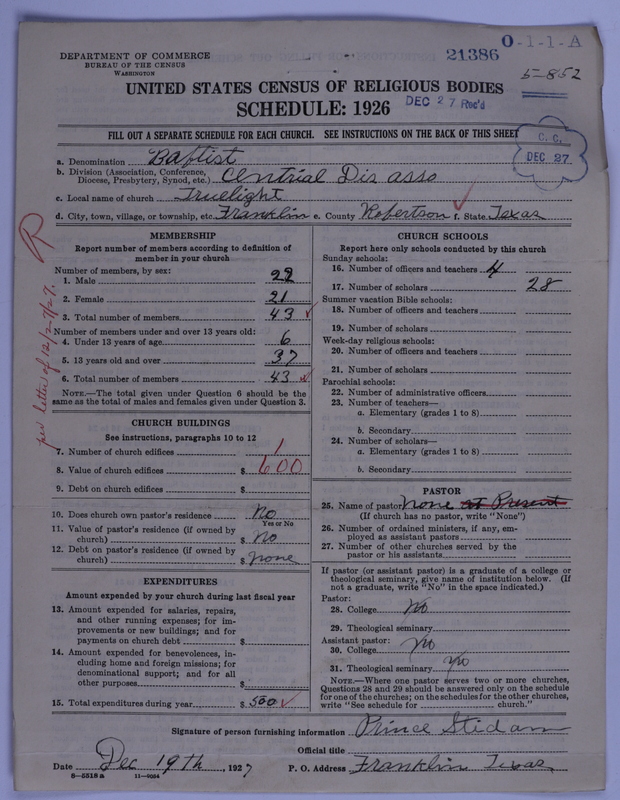 O-1-1-A
21386
5-852
DEPARTMENT OF COMMERCE
BUREAU OF THE CENSUS
WASHINGTON
UNITED STATES CENSUS OF RELIGIOUS BODIES
SCHEDULE: 1926
DEC 27 Rec'd
FILL OUT A SEPARATE SCHEDULE FOR EACH CHURCH. SEE INSTRUCTIONS ON THE BACK OF THIS SHEET
C. C.
DEC 27
a. Denomination Baptist
b. Division (Association, Conference, Diocese, Presbytery, Synod, etc.) Central Dis asso
c. Local name of church Truelight
d. City, town, village, or township, etc. Franklin e. County Robertson f. State Texas
R
per letter of 12/27/27.
MEMBERSHIP
Report number of members according to definition of
member in your church
Number of members, by sex:
1. Male 22
2. Female 21
3. Total number of members 43
Number of members under and over 13 years old:
4. Under 13 years of age 6
5. 13 years old and over 37
6. Total number of members 43
NOTE.—The total given under Question 6 should be
same as the total of males and females given under Question 3.
CHURCH BUILDINGS
See instructions, paragraphs 10 to 12
7. Number of church edifices 1
8. Value of church edifices $ 600
9. Debt on church edifices $
10. Does church own pastor's residence No
Yes or No
11. Value of pastor's residence (if owned by
church) $ No
12. Debt on pastor's residence (if owned by
church) $ none
EXPENDITURES
Amount expended by your church during last fiscal year
13. Amount expended for salaries, repairs,
and other running expenses; for im-
provements or new buildings; and for
payments on church debt $
14. Amount expended for benevolences, in-
cluding home and foreign missions; for
denominational support; and for all
other purposes $
15. Total expenditures during year $ 500
CHURCH SCHOOLS
Report here only schools conducted by this church
Sunday schools:
16. Number of officers and teachers 4
17. Number of scholars 28
Summer vacation Bible schools:
18. Number of officers and teachers
19. Number of scholars
Week-day religious schools:
20. Number of officers and teachers
21. Number of scholars
Parochial schools:
22. Number of administrative officers
23. Number of teachers—
a. Elementary (grades 1 to 8)
b. Secondary
24. Number of scholars—
a. Elementary (grades 1 to 8)
b. Secondary
PASTOR
25. Name of pastor none at Present
(If church has no pastor, write "None")
26. Number of ordained ministers, if any, em-
ployed as assistant pastors
27. Number of other churches served by the
pastor or his assistants
If pastor (or assistant pastor) is a graduate of a college or
theological seminary, give name of institution below. (If
not a graduate, write "No" in the space indicated.)
Pastor:
28. College No
29. Theological seminary
Assistant pastor:
30. College No
31. Theological seminary No
NOTE.—Where one pastor serves two or more churches,
Questions 28 and 29 should be answered only on the schedule
for one of the churches; on the schedules for the other churches,
write "See schedule for church."
Signature of person furnishing information Prince Stidam
Official title
Date Dec 19th, 1927 P. O. Address Franklin Texas
8-5518a 11-9064